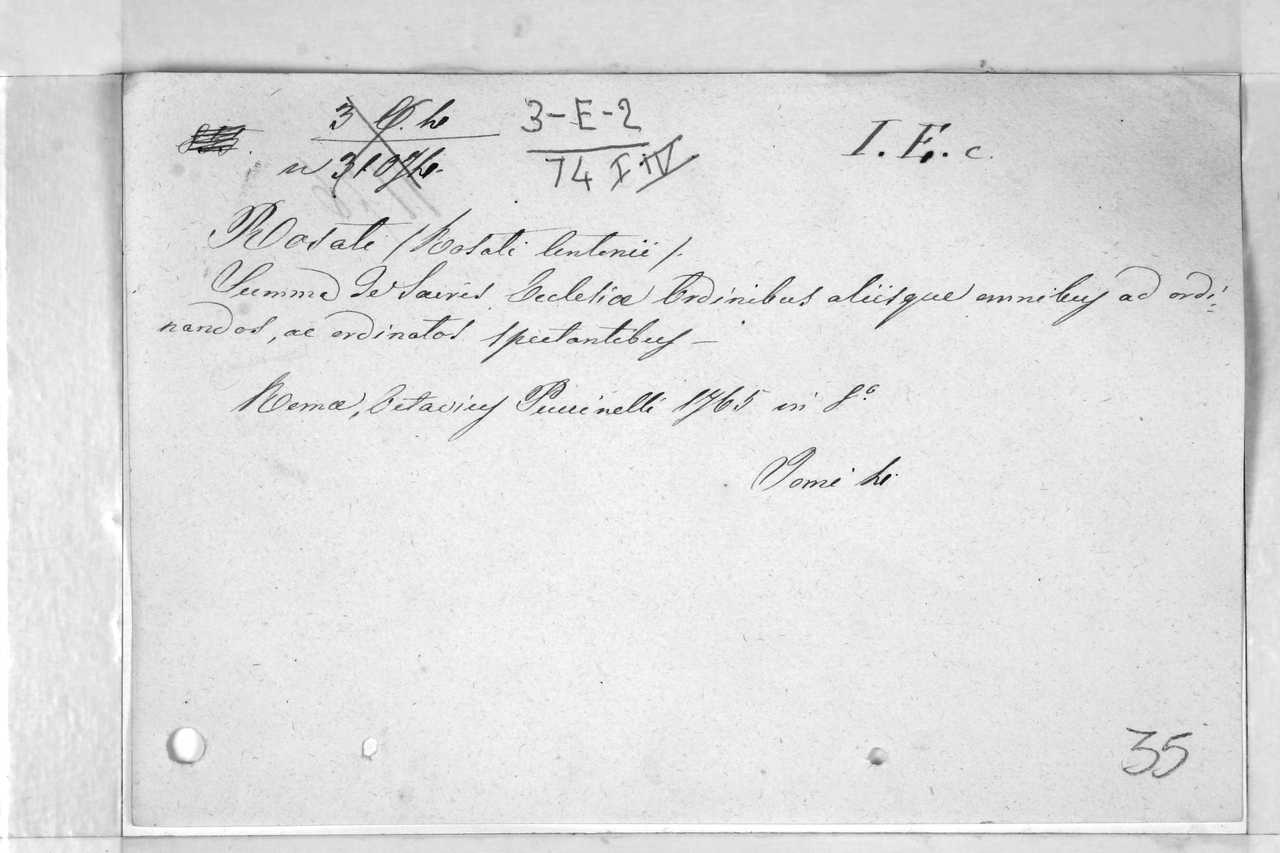 3-E-2
74 I-IV
I. E. c.
Rosati (Rosati Antonii).
Summa de Sacris Ecclesiæ Ordinibus aliisque omnibus ad ordi-
nandos, ac ordinatos spectantibus —
Romæ, Octavius Puccinelli 1765 in 8º
Tomi
35